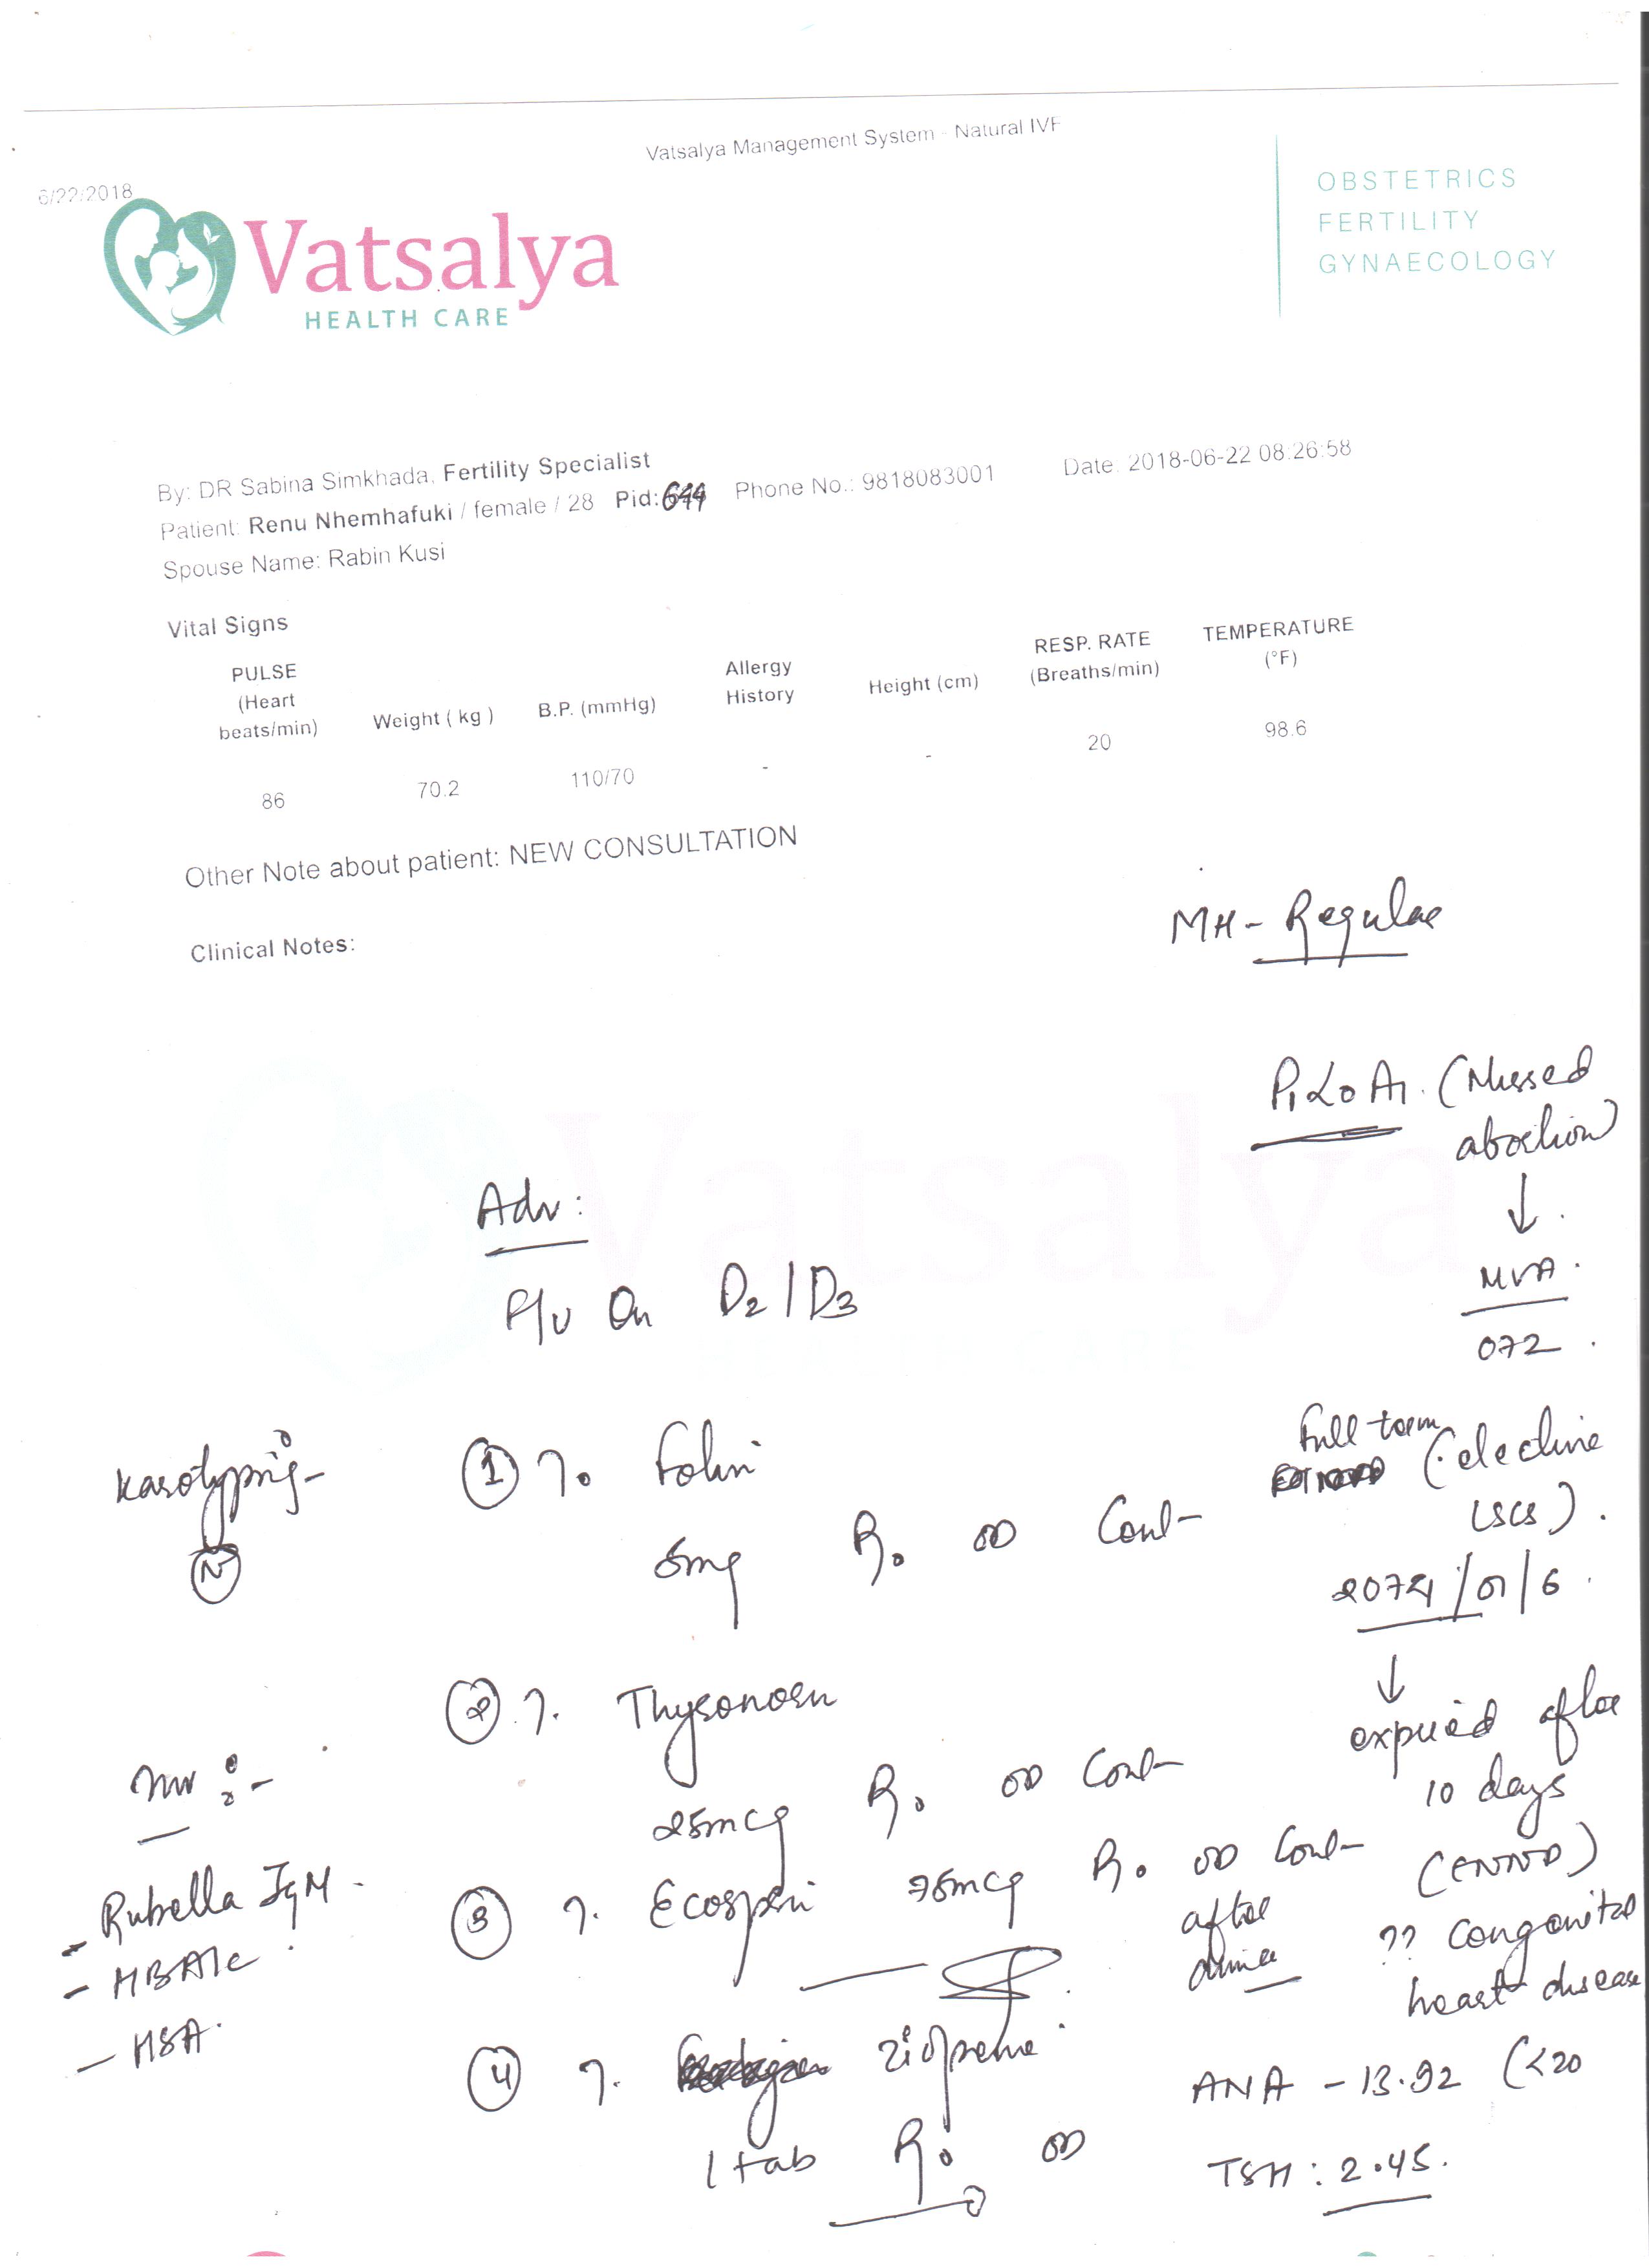 Vatsalya Management System - Natural IVF
6/22/2018
Vatsalya
HEALTH CARE
OBSTETRICS
FERTILITY
GYNAECOLOGY
By: DR Sabina Simkhada, Fertility Specialist
Date: 2018-06-22 08:26:58
Patient: Renu Nhemhafuki / female / 28 Pid: 644 Phone No.: 9818083001
Spouse Name: Rabin Kusi
Vital Signs
PULSE (Heart beats/min) Weight ( kg ) B.P. (mmHg) Allergy History Height (cm) RESP. RATE (Breaths/min) TEMPERATURE (°F)
86 70.2 110/70 - - 20 98.6
Other Note about patient: NEW CONSULTATION
Clinical Notes:
MH - Regular
P1L0A1. (Missed
abortion)
↓
MVA.
072.
Full term (elective
LSCS).
2074/01/6.
↓
expired after
10 days
(ENND)
?? Congenital
heart disease
ANA - 13.92 (<20
TSH: 2.45.
Adv:
F/U On D2/D3
① T. Folin
5mg P.o OD Cont-
② T. Thyronorm
25mcg P.o OD Cont-
③ T. Ecosprin 75mcg P.o OD Cont-
after
dinner
④ T.
1 tab P.o OD
Karotyping -
N
Inv :-
- Rubella IgM -
- HBA1c.
- HSA.
Vatsalya
HEALTH CARE